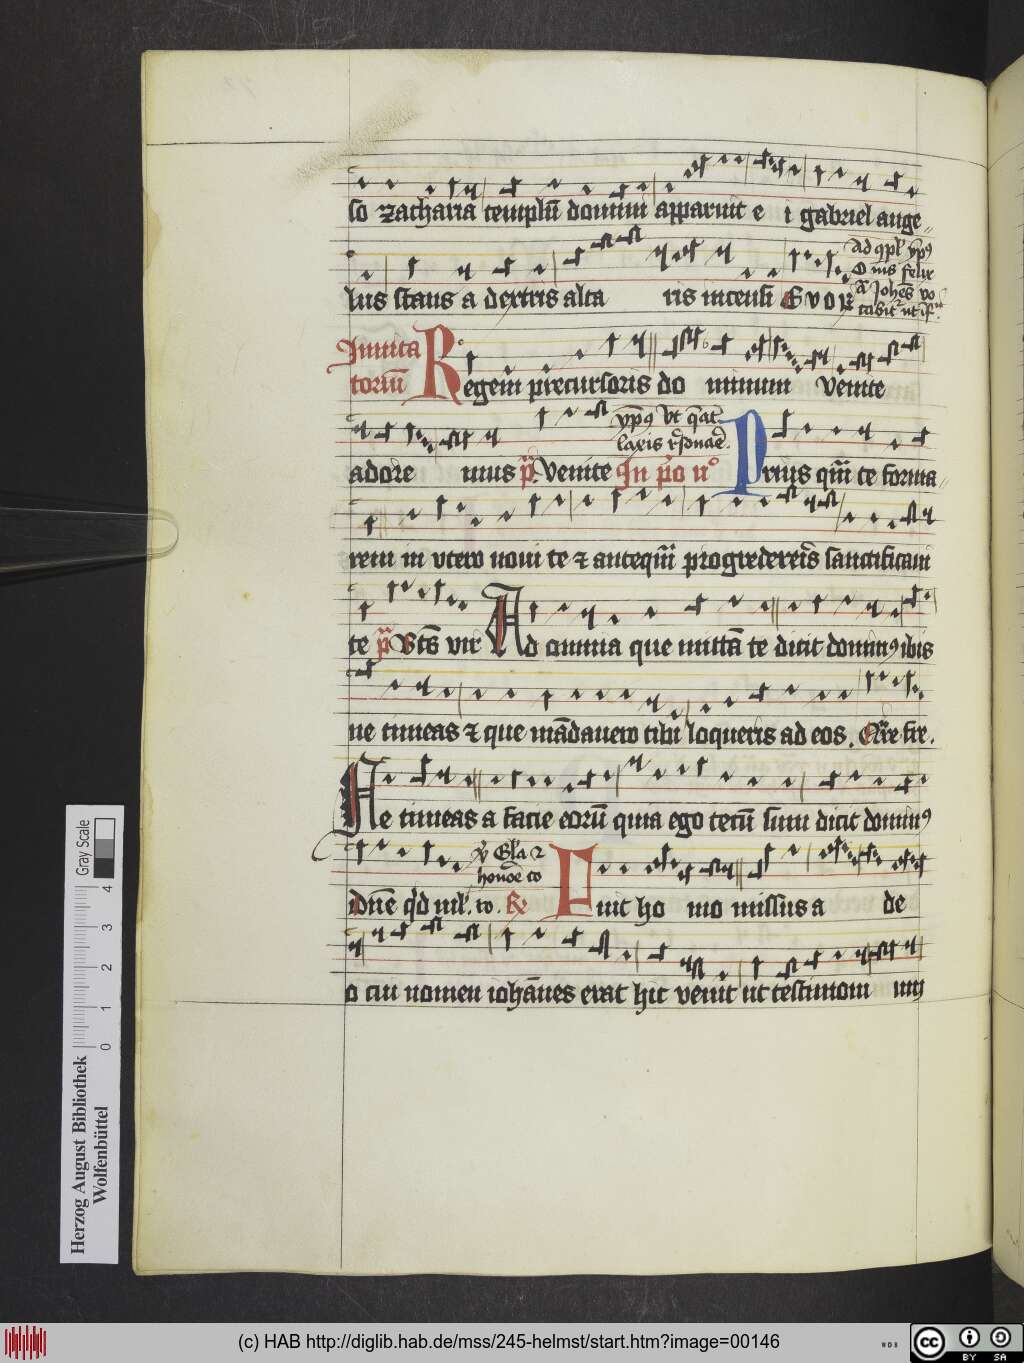 so zacharia templū domini apparuit e i gabriel ange
lus stans a dextris alta ris incensi E v o
Ad
O nis felix
Johēs vo
Inuita
toriū Regem precursoris do minum Venite
adore mus Venite In
ypꝰ Vt
laxis
Prius qm̄ te forma
rem in vtero noui te ⁊ anteqm̄ progredereris sanctificaui
te Bt̄s vir Ad omnia que mittā te dicit dominꝰ ibis
ne timeas ⁊ que mādauero tibi loqueris ad eos.
Ne timeas a facie eorū quia ego tecū sum dicit dominꝰ
Gl̄a ⁊
honoē co
dn̄e
Fuit ho mo missus a de
o cui nomen iohānes erat hic venit ut testimoni
Herzog August Bibliothek
Wolfenbüttel
Gray Scale
0 1 2 3 4
(c) HAB http://diglib.hab.de/mss/245-helmst/start.htm?image=00146
WDB
cc
BY SA